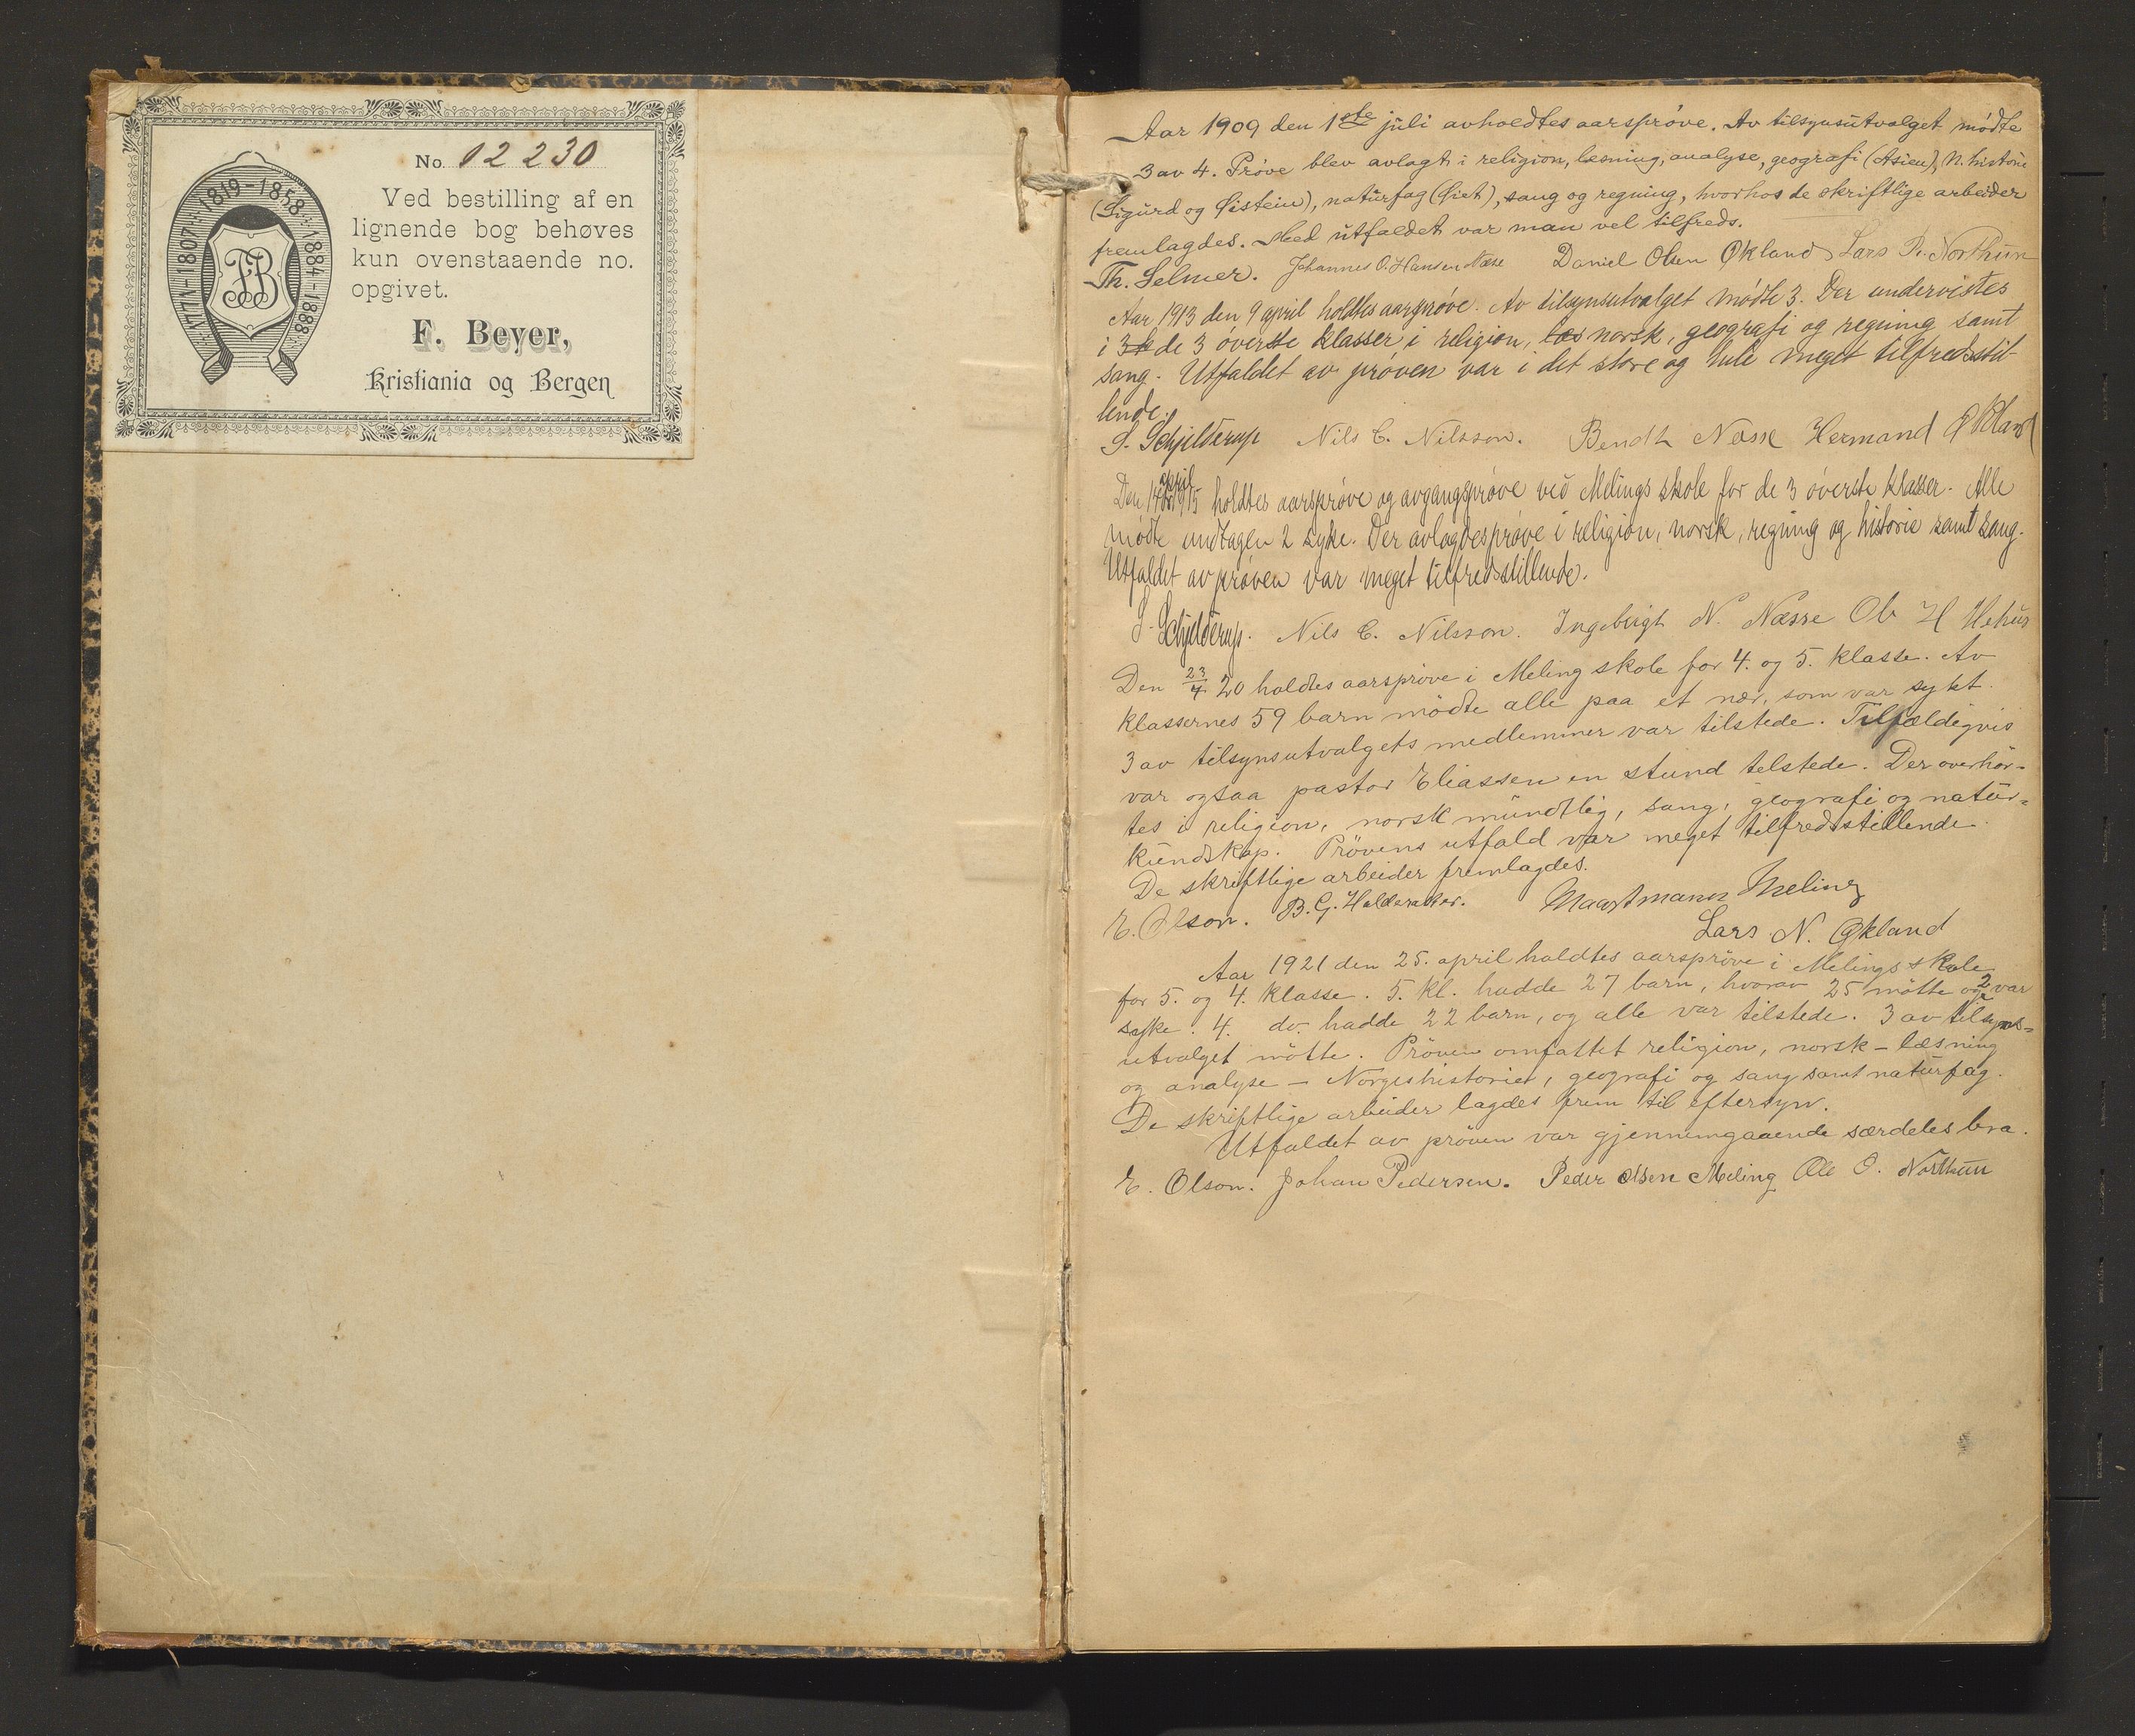 No. 12230
Ved bestilling af en
lignende bog behøves
kun ovenstaaende no.
opgivet.
F. Beyer,
Kristiania og Bergen
1771-1807-1819-1858-1884-1888
FB
Aar 1909 den 1ste juli avholdtes aarsprøve. Av tilsynsutvalget mødte
3 av 4. Prøve blev avlagt i religion, læsning, analyse, geografi (Asien), N. historie
(Sigurd og Øistein), naturfag (Øiet), sang og regning, hvorhos de skriftlige arbeider
fremlagdes. Med utfaldet var man vel tilfreds.
Th. Selmer. Johannes O. Hansen Næse Daniel Olsen Økland Lars P. Northun
Aar 1913 den 9 april holdtes aarsprøve. Av tilsynsutvalget mødte 3. Der undervistes
i 3 de 3 øverste klasser i religion, læs norsk, geografi og regning samt
sang. Utfaldet av prøven var i det store og hele meget tilfredsstil-
lende.
S. Schjelderup Nils C. Nilsson. Bendt Næsse Hermand Økland
Den 14 april 1915 holdtes aarsprøve og avgangsprøve ved Melings skole for de 3 øverste klasser. Alle
mødte undtagen 2 syke. Der avlagdes prøve i religion, norsk, regning og historie samt sang.
Utfaldet av prøven var meget tilfredsstillende.
S. Schjelderup. Nils C. Nilsson. Ingebrigt N. Næsse Ole H Mehus
Den 23/4 20 holdtes aarsprøve i Meling skole for 4. og 5. klasse. Av
klassernes 59 barn mødte alle paa et nær, som var sykt.
3 av tilsynsutvalgets medlemmer var tilstede. Tilfældigvis
var ogsaa pastor Eliassen en stund telstede. Der overhør-
tes i religion, norsk mundtlig, sang, geografi og natur-
kundskap. Prøvens utfald var meget tilfredsstillende.
De skriftlige arbeider fremlagdes.
E. Olson. B. G. Halderaker. Maartmann Meling
Lars N. Økland
Aar 1921 den 25. april holdtes aarsprøve i Melings skole
for 5. og 4. klasse. 5. kl. hadde 27 barn, hvorav 25 møtte og 2 var
syke. 4. do. hadde 22 barn, og alle var tilstede. 3 av tilsyns-
utvalget møtte. Prøven omfattet religion, norsk - læsning
og analyse - Norgeshistorie, geografi og sang samt naturfag.
De skriftlige arbeider lagdes frem til eftersyn.
Utfaldet av prøven var gjennemgaaende særdeles bra.
E. Olson. Johan Pedersen. Peder Olsen Meling Ole O. Northun